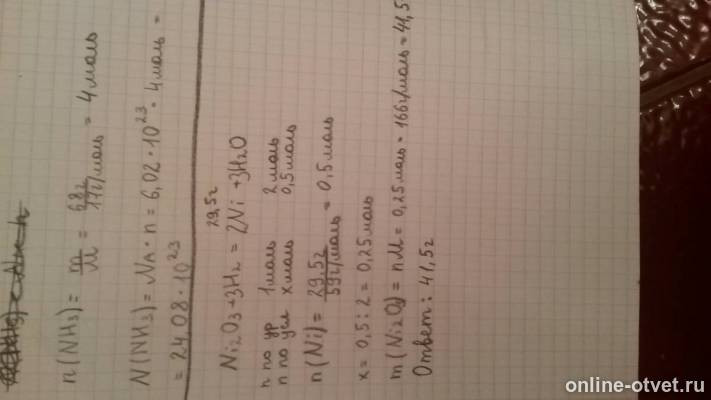 n(NH₃) = m/M = 68г/17г/моль = 4 моль
N(NH₃) = Nᴀ · n = 6,02 · 10²³ · 4 моль =
= 24,08 · 10²³
29,5г
Ni₂O₃ + 3H₂ = 2Ni + 3H₂O
n по ур 1 моль 2 моль
n по усл x моль 0,5 моль
n(Ni) = 29,5г/59г/моль = 0,5 моль
x = 0,5 : 2 = 0,25 моль
m(Ni₂O₃) = nM = 0,25 моль · 166г/моль = 41,5
Ответ: 41,5г
online-otvet.ru